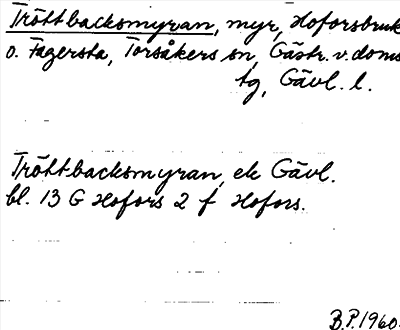 Tröttbacksmyran, myr, Hoforsbruk
o. Fagersta, Torsåkers sn, Gästr. v. doms
tg, Gävl. l.
Tröttbacksmyran, ek Gävl.
bl. 13 G Hofors 2 f Hofors.
B.P. 1960.